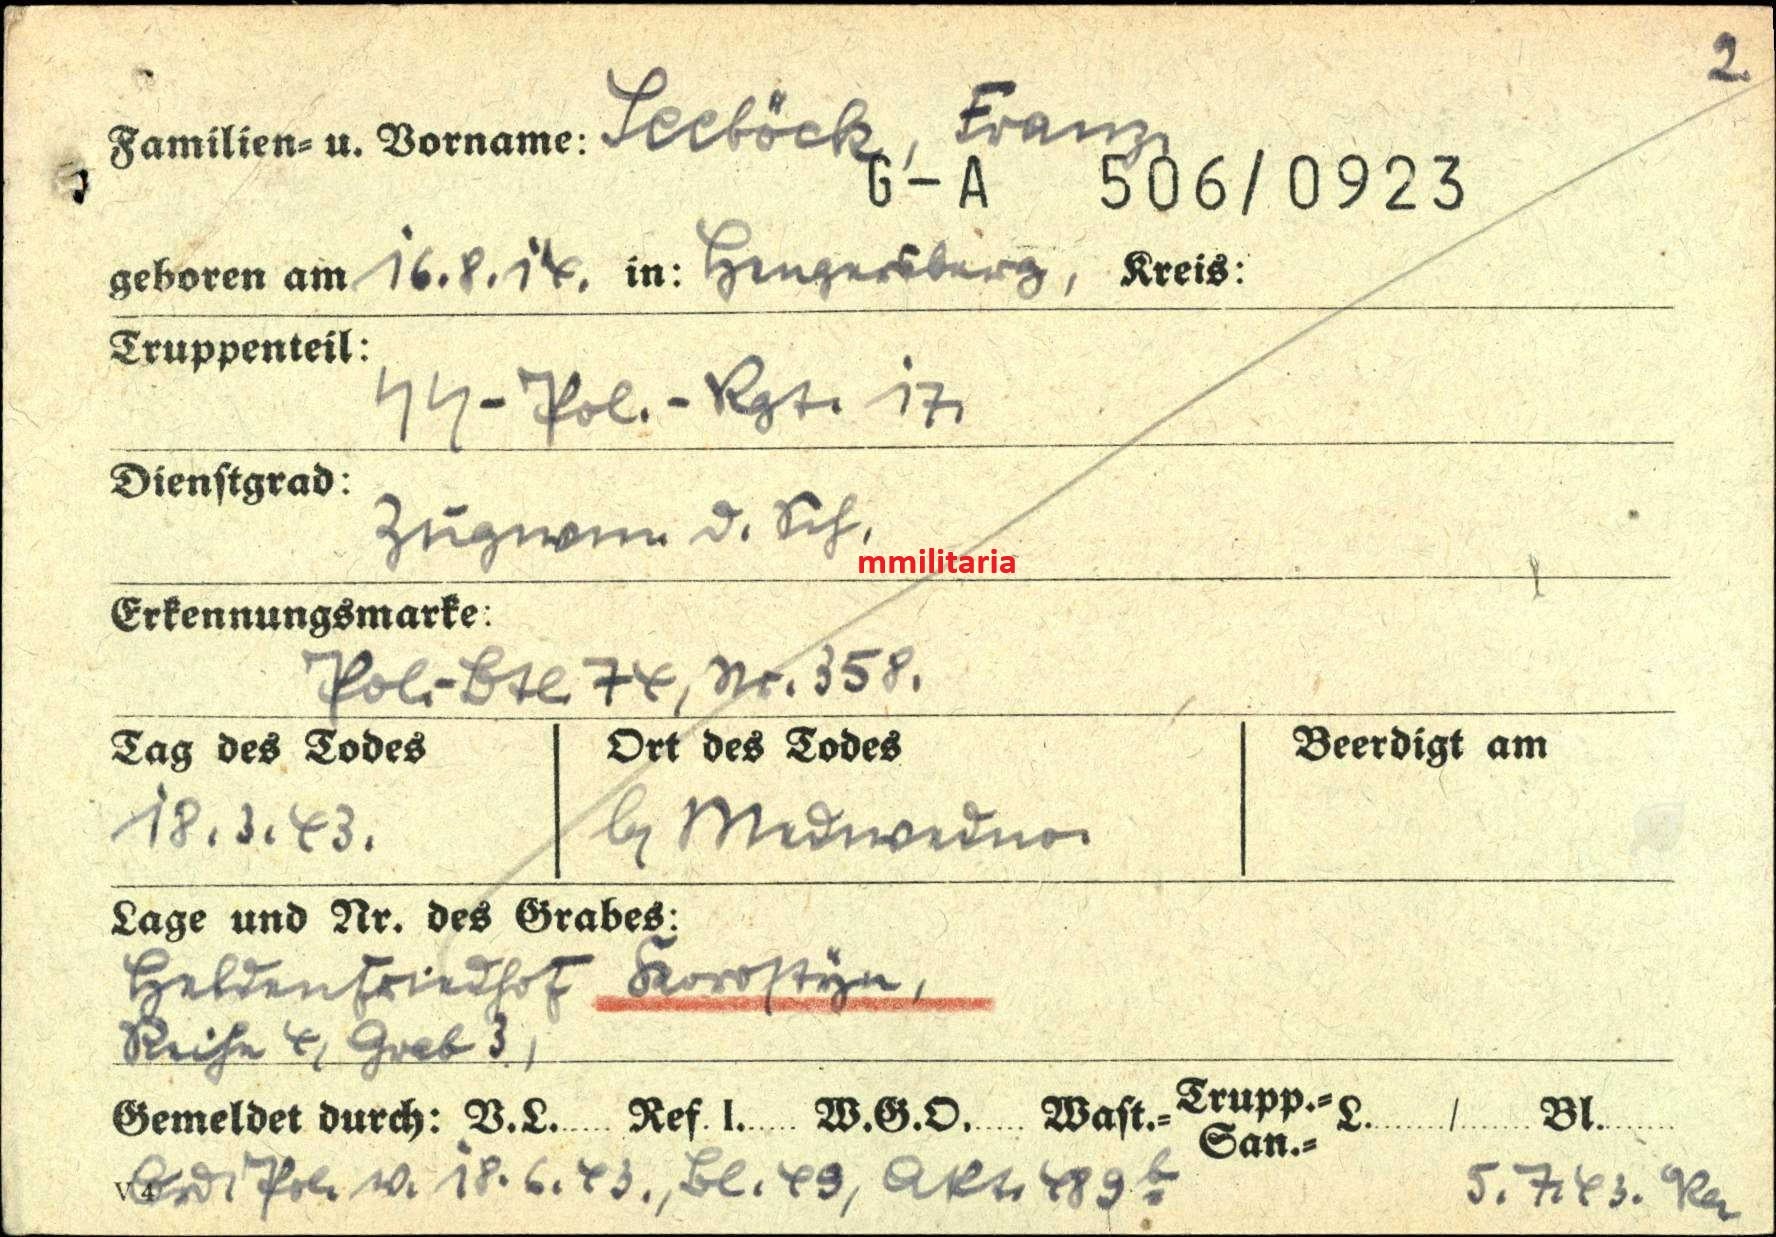 2.
Familien- u. Vorname: Seeböck, Franz,
G-A 506/0923
geboren am 16.8.14. in: Hengersberg, Kreis:
Truppenteil:
SS-Pol.-Rgt. 17,
Dienstgrad:
Zugwm. d. Sch.
mmilitaria
Erkennungsmarke:
Pol.-Btl. 74, Nr. 358.
Tag des Todes Ort des Todes Beerdigt am
18.3.43. by Medwedno.
Lage und Nr. des Grabes:
Heldenfriedhof Korostyn,
Reihe 4, Grab 3,
Gemeldet durch: V.L...... Ref. I...... W.G.O...... Wast.- Trupp.- San.- L......../........ Bl.........
V 4 Ord. Pol. v. 18.6.43., Bl. 49, Akt. 489 b
5.7.43.